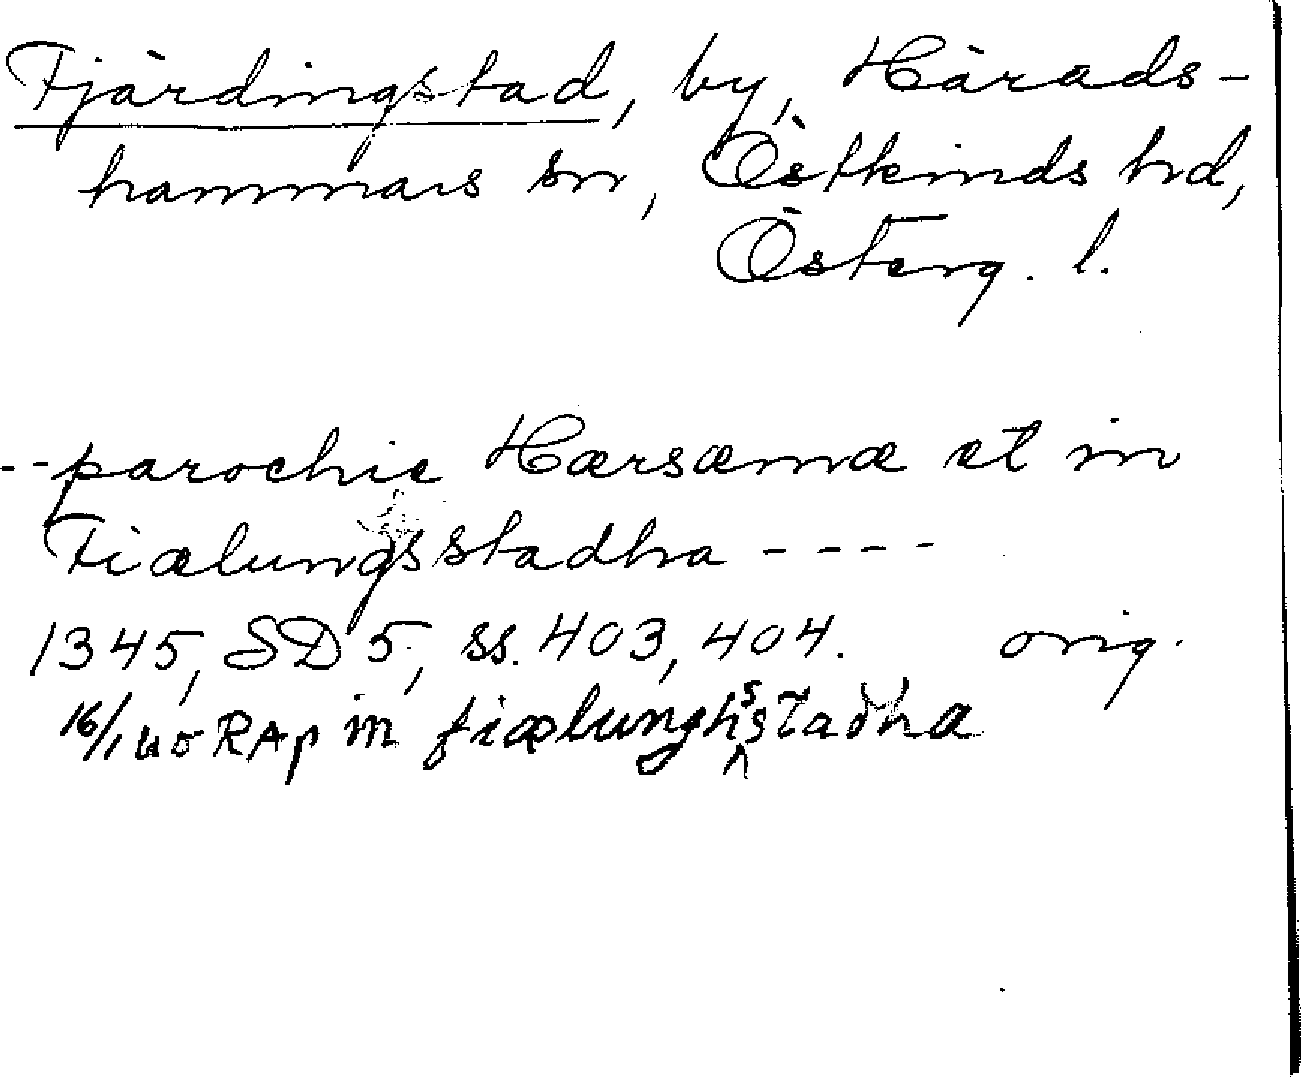 Fjärdingstad, by, Härads-
hammars sn, Östkinds hd,
Österg. l.
--parochie Hærsæmæ et in
Fiælungsstadha ----
1345, SD 5, ss. 403, 404. orig.
16/1 RAp in fiælunghsstadha